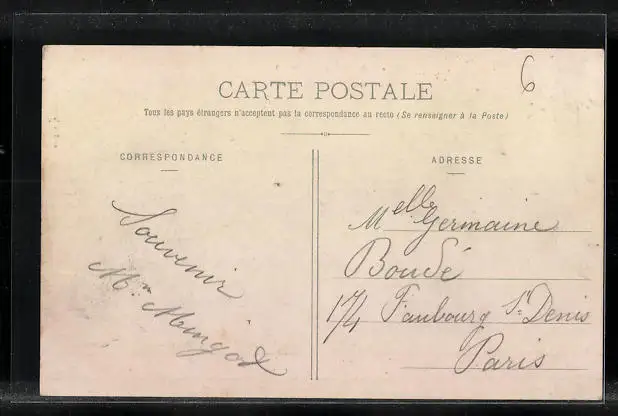 6
CARTE POSTALE
Tous les pays étrangers n'acceptent pas la correspondance au recto (Se renseigner à la Poste)
CORRESPONDANCE
Souvenir
ADRESSE
Melle Germaine
Boudé
174 Faubourg St Denis
Paris